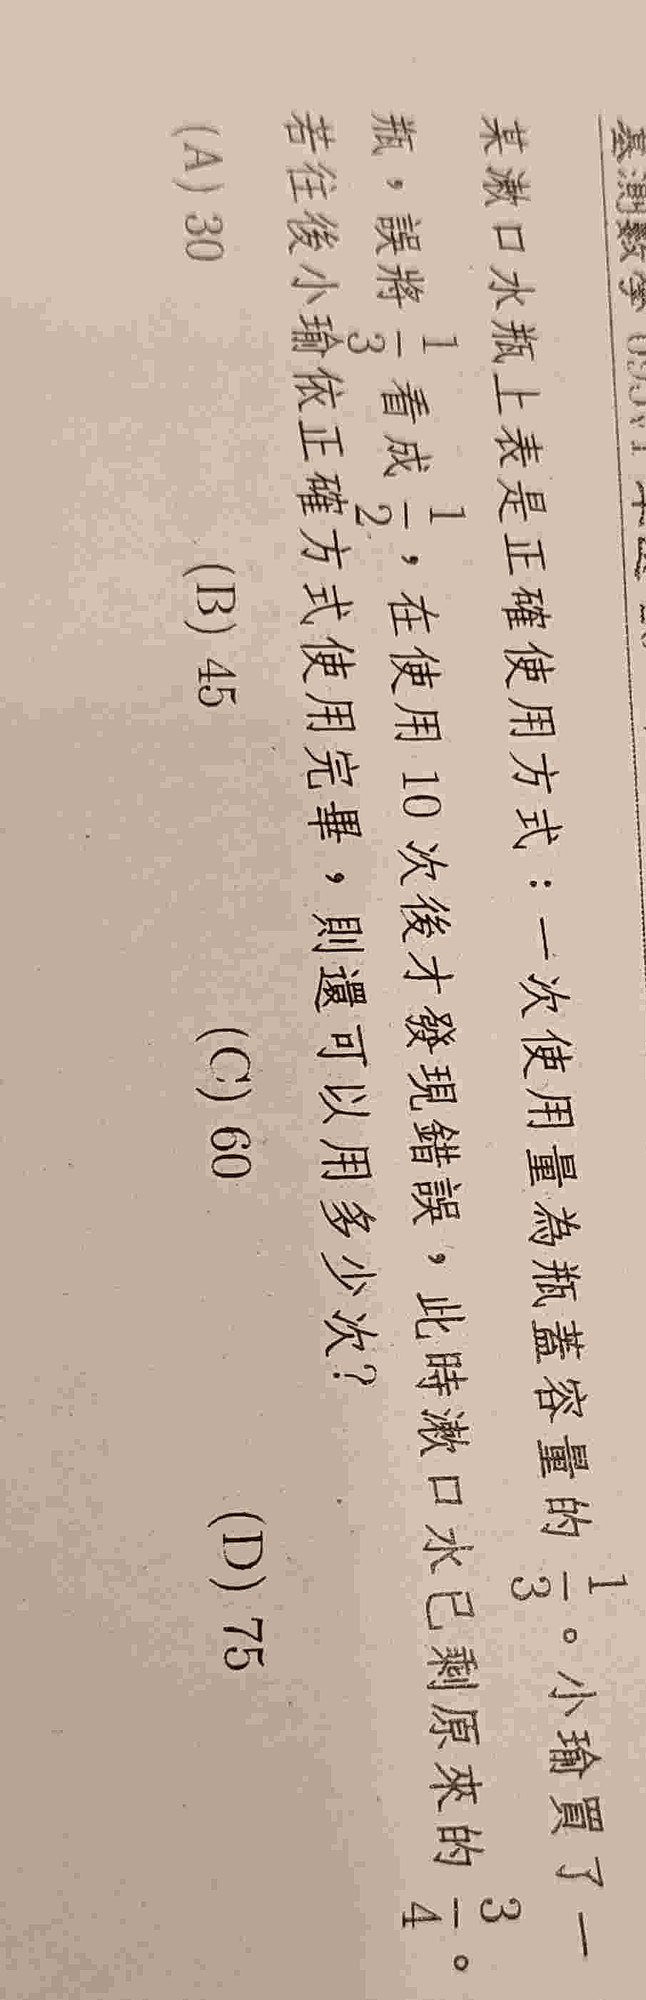 基測數學
某漱口水瓶上表是正確使用方式:一次使用量為瓶蓋容量的 1/3。小瑜買了一
瓶,誤將 1/3 看成 1/2,在使用 10 次後才發現錯誤,此時漱口水已剩原來的 3/4。
若往後小瑜依正確方式使用完畢,則還可以用多少次?
(A) 30 (B) 45 (C) 60 (D) 75